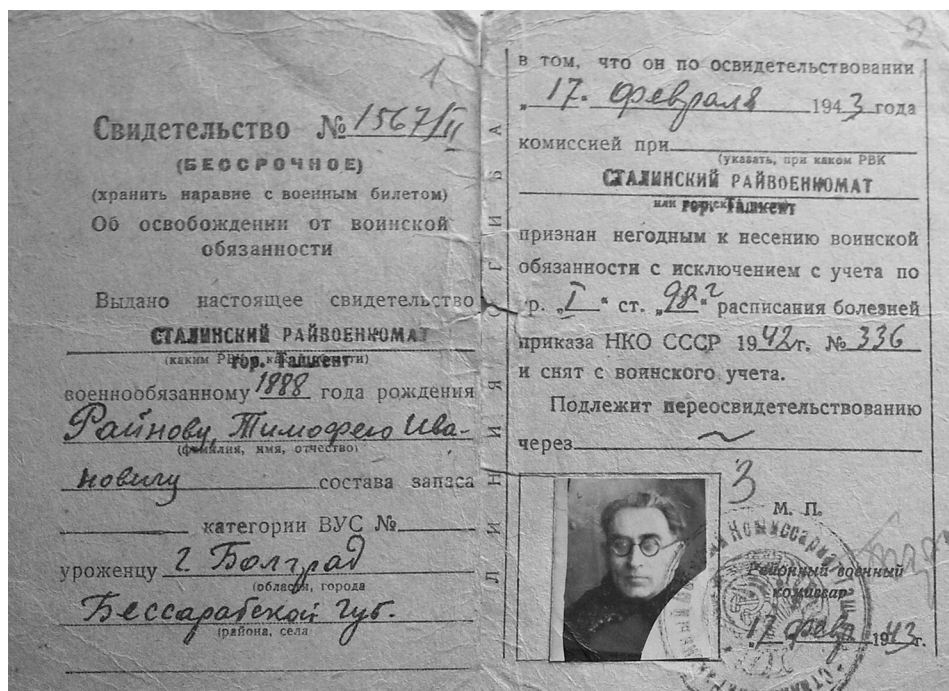 1
Свидетельство № 1567/II
(БЕССРОЧНОЕ)
(хранить наравне с военным билетом)
Об освобождении от воинской
обязанности
Выдано настоящее свидетельство
СТАЛИНСКИЙ РАЙВОЕНКОМАТ
(каким РВК,
гор. Ташкент
военнообязанному 1888 года рождения
Райнову, Тимофею Ива-
(фамилия, имя, отчество)
новичу состава запаса
категории ВУС №
уроженцу г. Болград
(области, города
Бессарабской губ.
(района, села
ЛИНИЯ СГИБА
2
в том, что он по освидетельствовании
„17. февраля 1943 года
комиссией при
(указать, при каком РВК
СТАЛИНСКИЙ РАЙВОЕНКОМАТ
или
гор. Ташкент
признан негодным к несению воинской
обязанности с исключением с учета по
гр. „I“ ст. „98г“ расписания болезней
приказа НКО СССР 1942 г. № 336
и снят с воинского учета.
Подлежит переосвидетельствованию
через ~
3
М. П.
Районный военный
комиссар
„17 февр 1943 г.